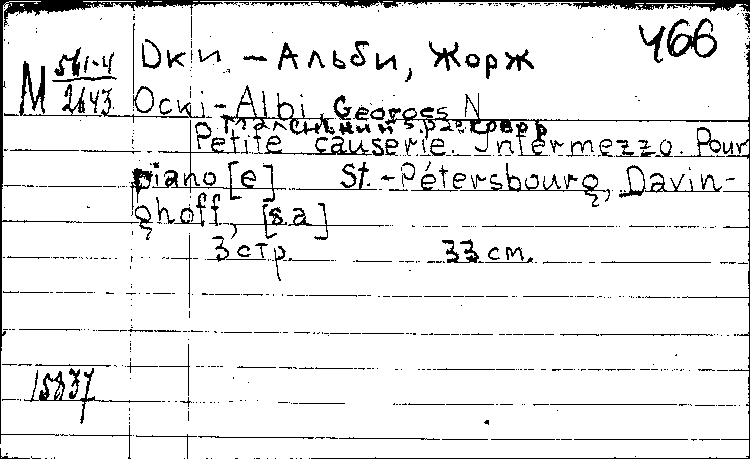 466
Оки – Альби, Жорж
М 561-4
2643
Ocki-Albi, Georges N
Маленький разговор
Petite causerie. Intermezzo. Pour
piano[e] St.-Pétersbourg, Davin-
ghoff, [s.a]
3 стр. 33 cm.
15837